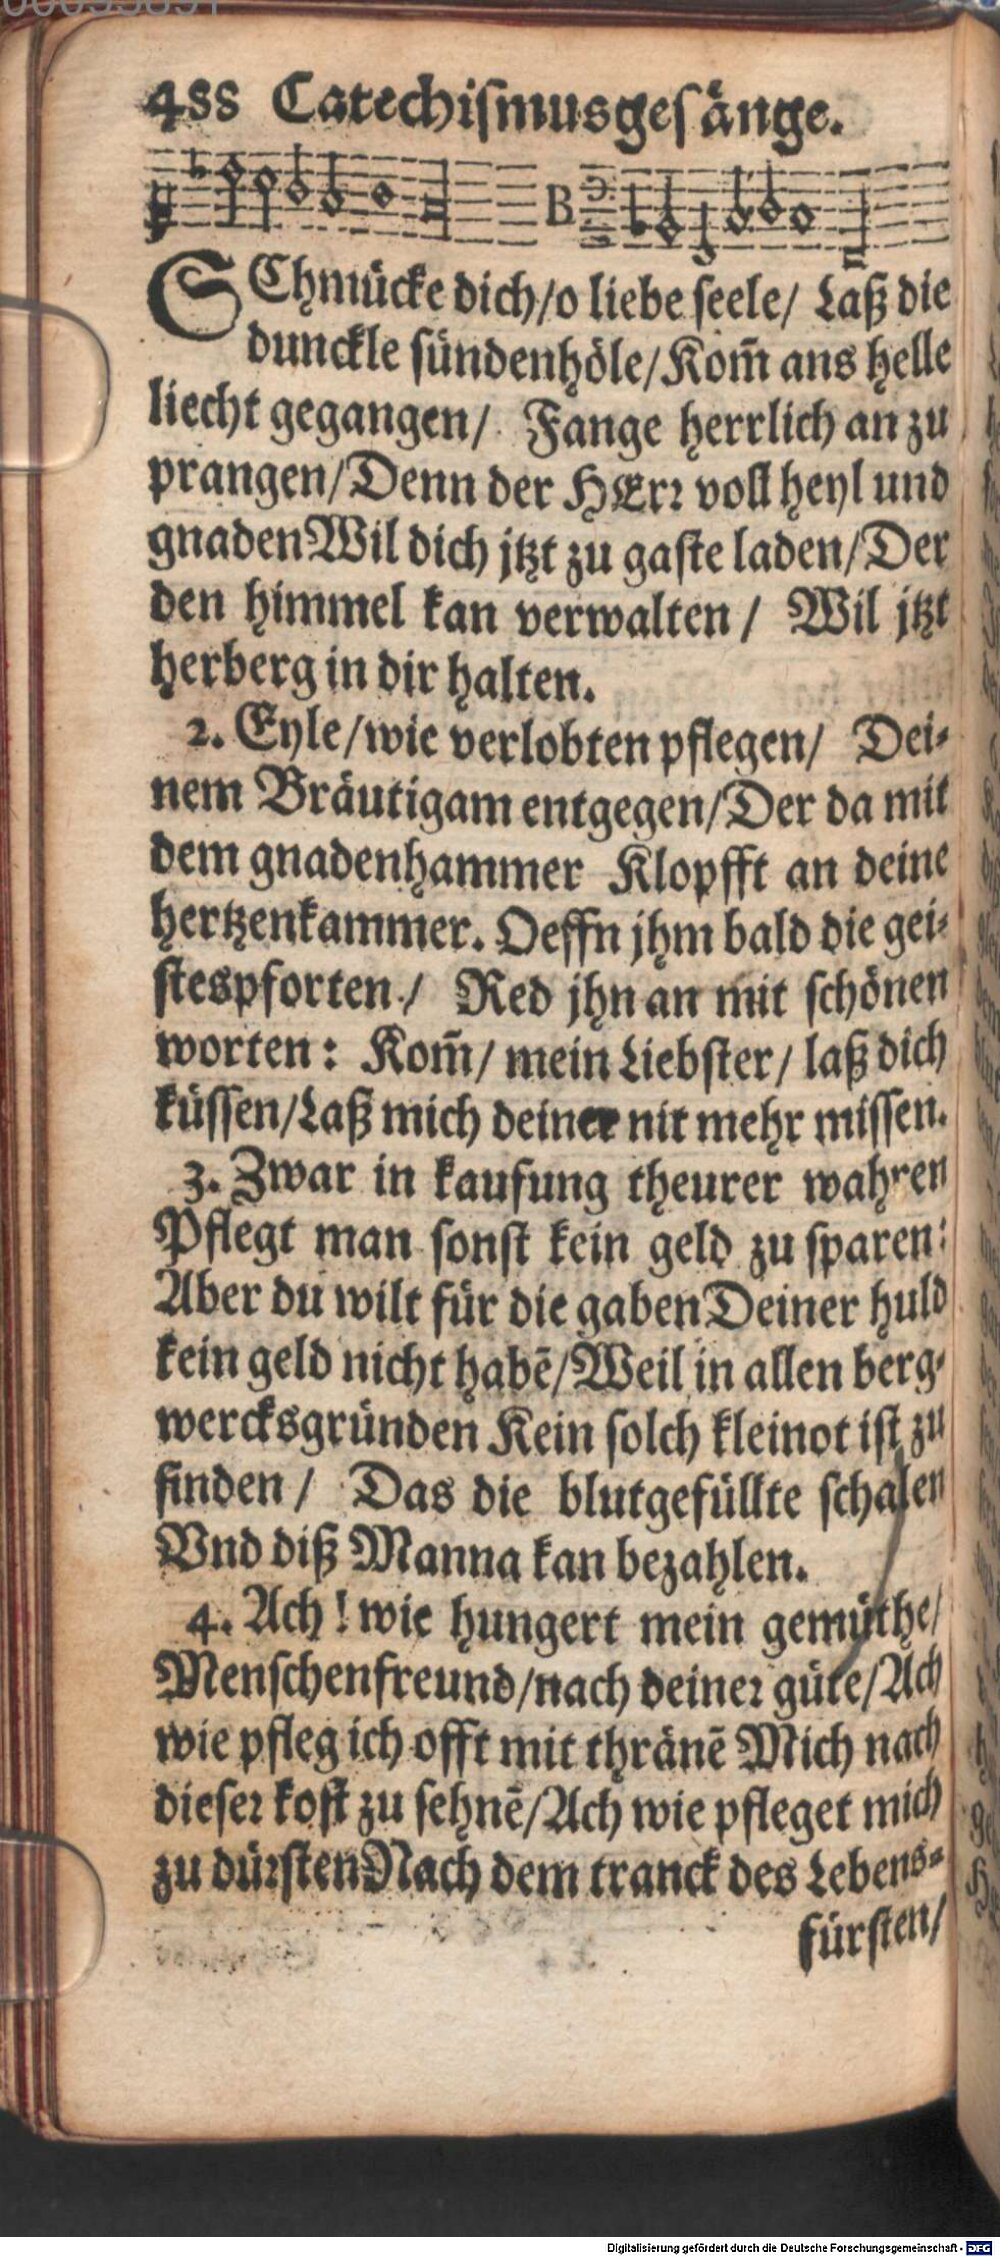 488 Catechiſmusgeſänge.
B
SChmücke dich/o liebe ſeele/ Laß die
dunckle ſündenhöle/Kom̃ ans helle
liecht gegangen/ Fange herrlich an zu
prangen/Denn der HErr voll heyl und
gnaden Wil dich jtzt zu gaſte laden/Der
den himmel kan verwalten/ Wil jtzt
herberg in dir halten.
2. Eyle/wie verlobten pflegen/ Dei⸗
nem Bräutigam entgegen/Der da mit
dem gnadenhammer Klopfft an deine
hertzenkammer. Oeffn jhm bald die gei⸗
ſtespforten/ Red jhn an mit ſchönen
worten: Kom̃/ mein Liebſter/ laß dich
küſſen/Laß mich deiner nit mehr miſſen.
3. Zwar in kaufung theurer wahren
Pflegt man ſonſt kein geld zu ſparen:
Aber du wilt für die gaben Deiner huld
kein geld nicht habē/Weil in allen berg⸗
wercksgründen Kein ſolch kleinot iſt zu
finden/ Das die blutgefüllte ſchalen
Vnd diß Manna kan bezahlen.
4. Ach! wie hungert mein gemüthe/
Menſchenfreund/nach deiner güte/Ach
wie pfleg ich offt mit thränē Mich nach
dieſer koſt zu ſehnē/Ach wie pfleget mich
zu dürſten Nach dem tranck des Lebens⸗
fürſten/
Digitalisierung gefördert durch die Deutsche Forschungsgemeinschaft - DFG